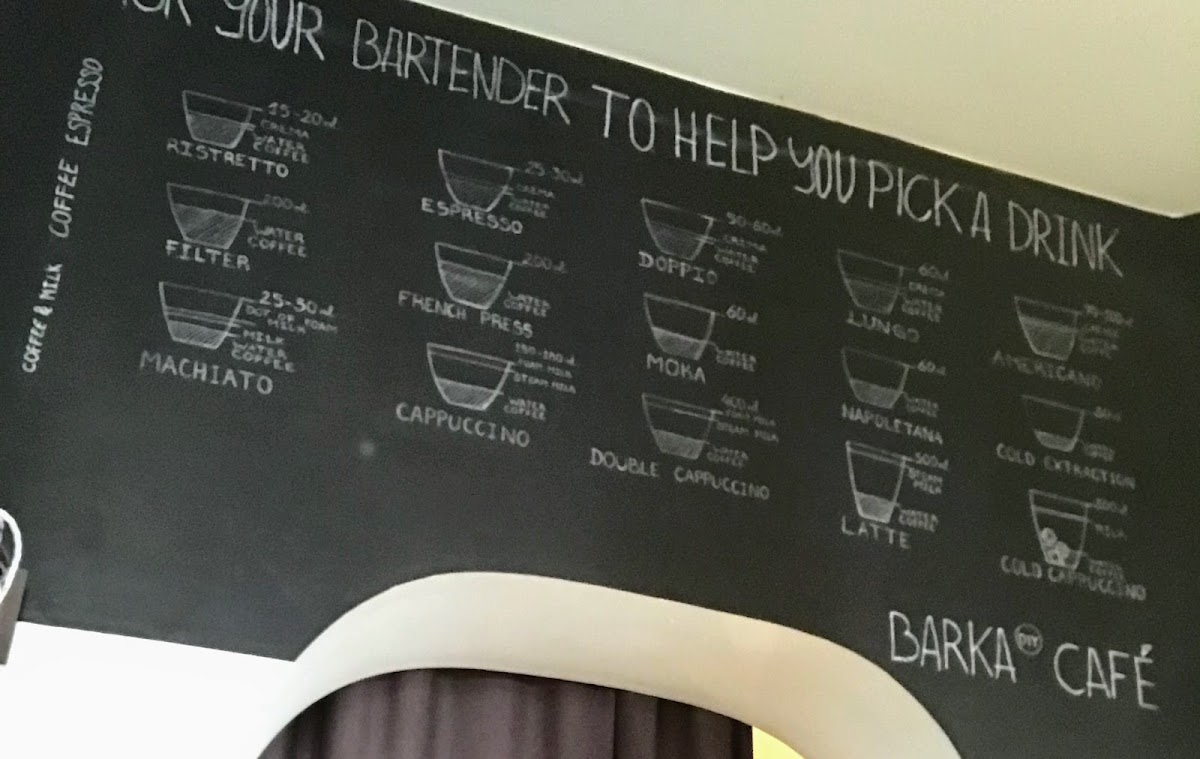 YOUR BARTENDER TO HELP YOU PICK A DRINK
ESPRESSO
15-20ml
CREMA
WATER
COFFEE
RISTRETTO
25-30ml
CREMA
WATER
COFFEE
ESPRESSO
CREMA
WATER
COFFEE
DOPPIO
60ml
CREMA
WATER
COFFEE
LUNGO
AMERICANO
COFFEE
200ml
WATER
COFFEE
FILTER
200ml
WATER
COFFEE
FRENCH PRESS
60ml
WATER
COFFEE
MOKA
60ml
WATER
COFFEE
NAPOLETANA
COLD EXTRACTION
COFFEE & MILK
25-30ml
DOT OF FOAM
MILK
MILK
WATER
COFFEE
MACHIATO
FOAM MILK
STEAM MILK
WATER
COFFEE
CAPPUCCINO
400ml
FOAM MILK
STEAM MILK
WATER
COFFEE
DOUBLE CAPPUCCINO
300ml
STEAM
MILK
WATER
COFFEE
LATTE
MILK
COLD CAPPUCCINO
BARKA DIY CAFÉ